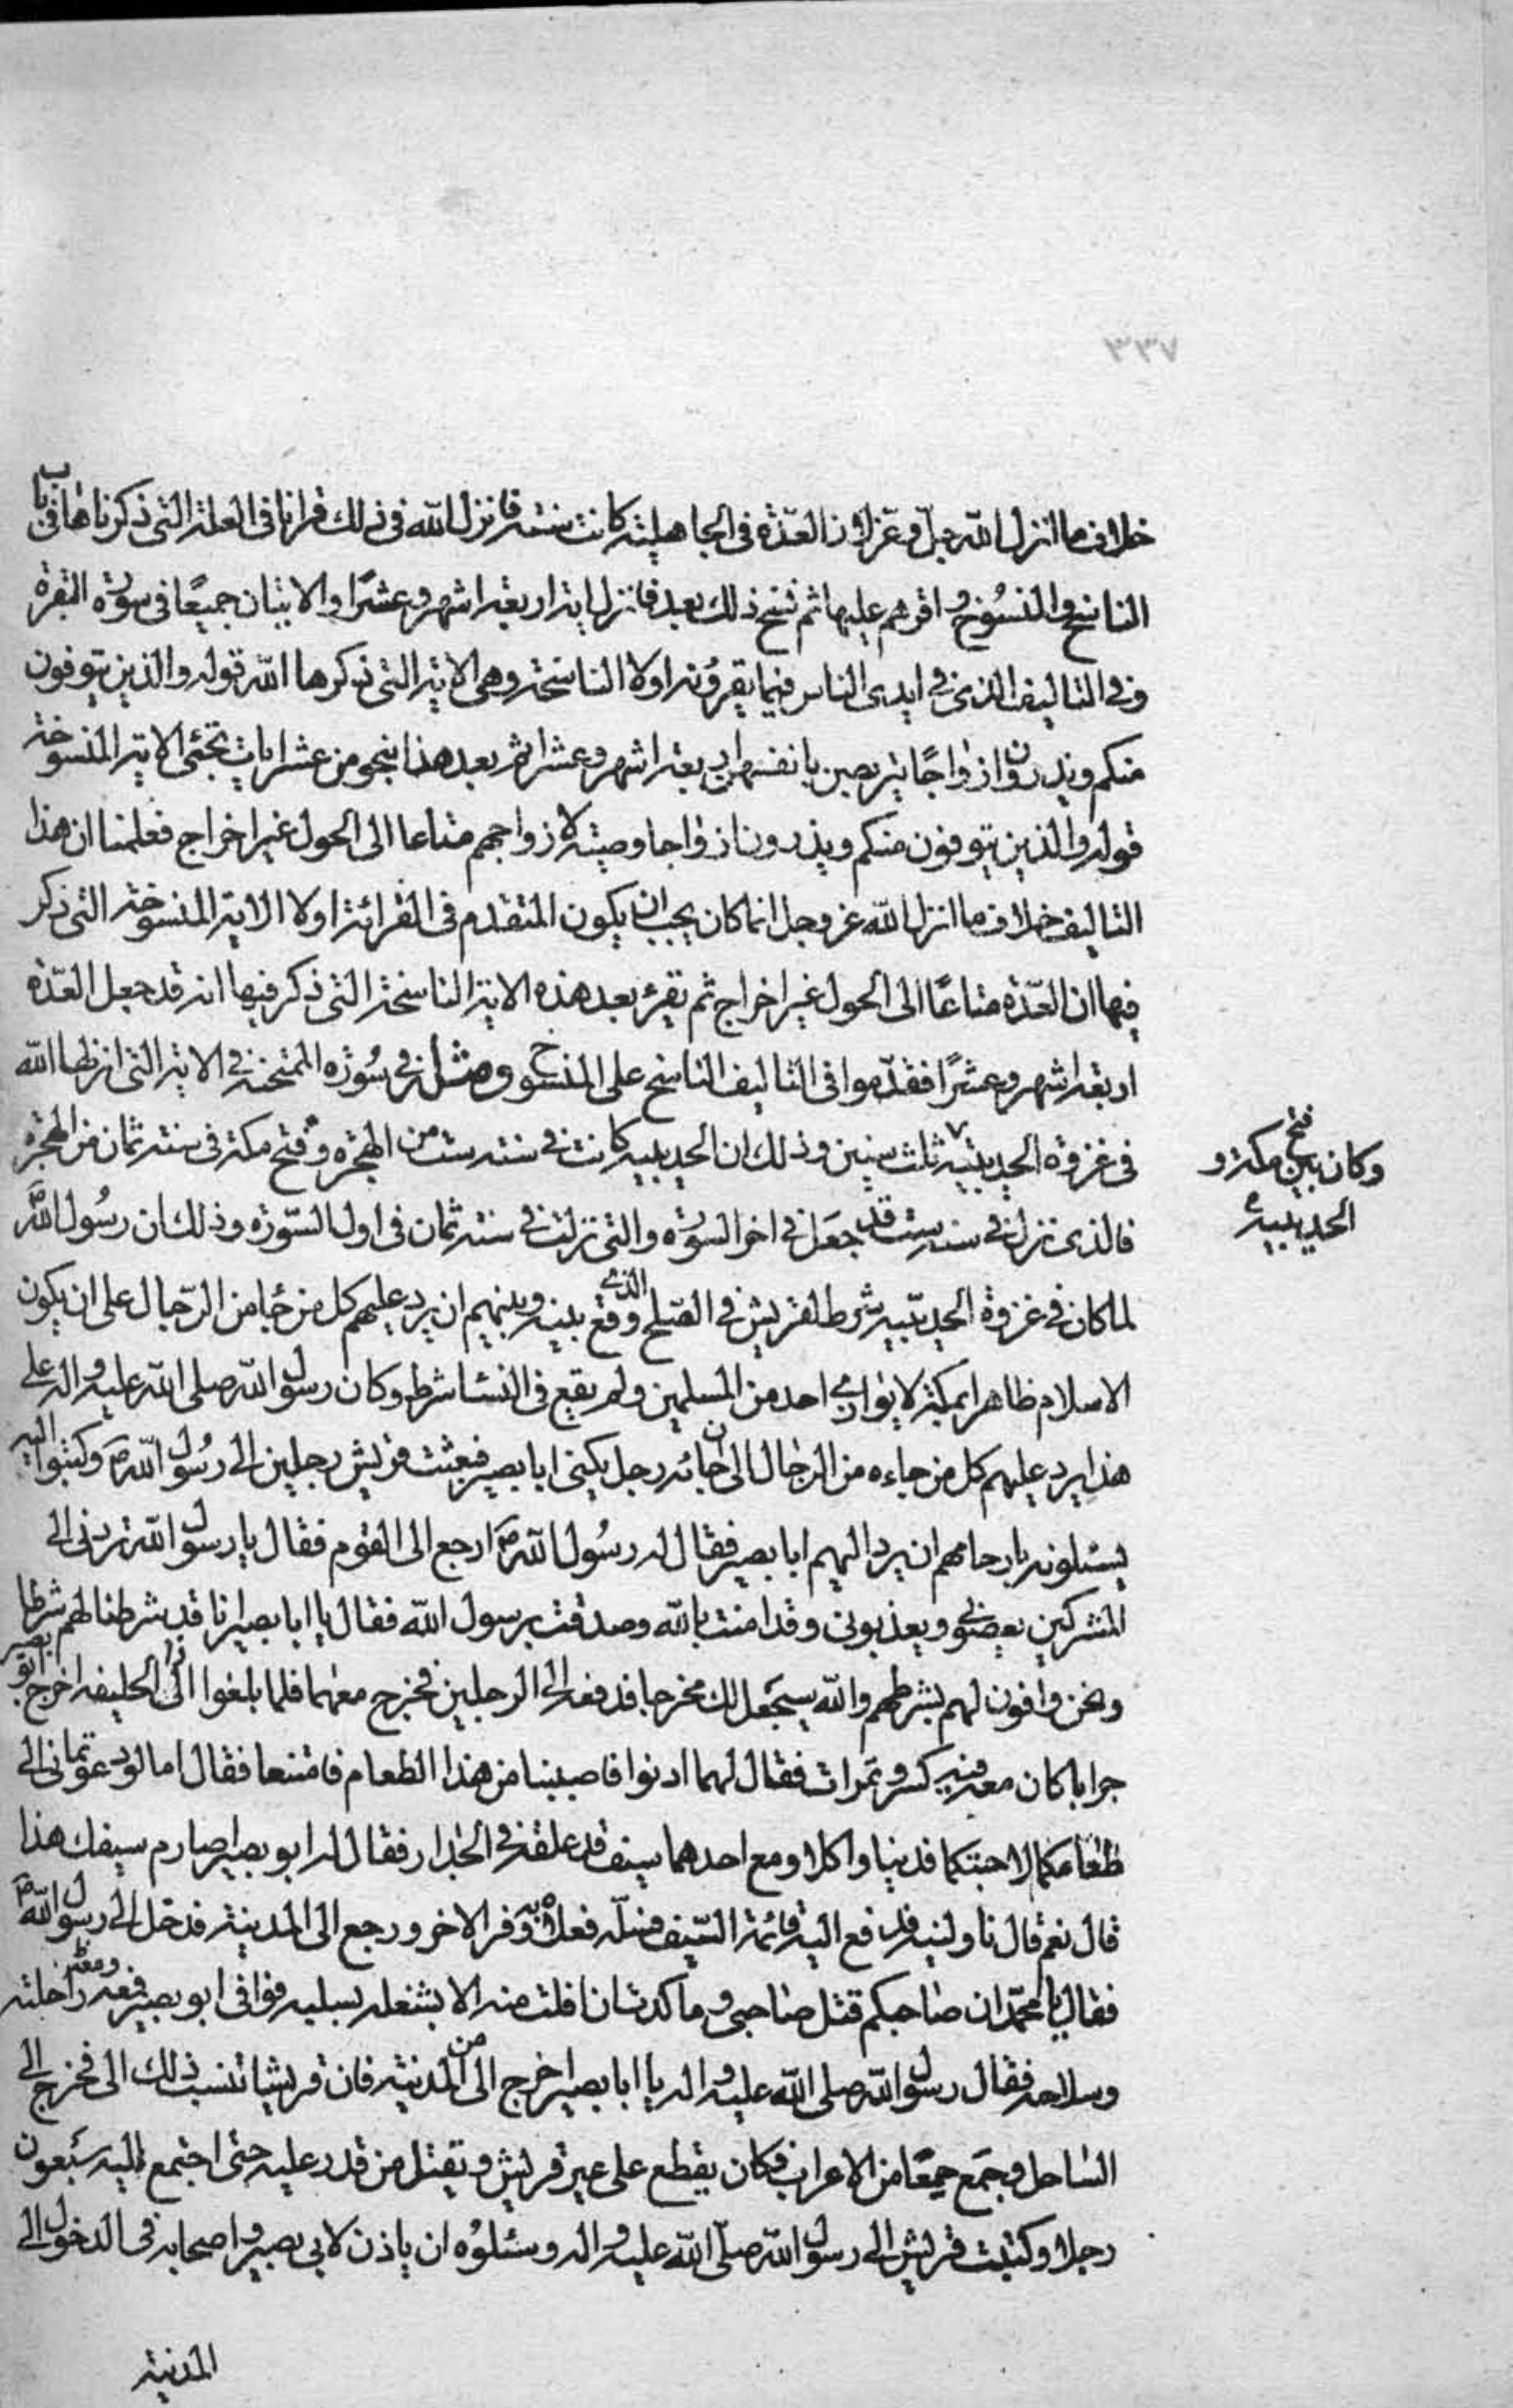 ٣٣٧
خلاف ما انزل الله جل وعز لان العدّة فى الجاهلية كانت سنة فانزل الله فى ذلك قرانا فى العلة التى ذكرناها فى باب
الناسخ والمنسوخ واقرهم عليها ثم نسخ ذلك بعد فانزل اية اربعة اشهر وعشرًا والايتان جميعًا فى سورة البقرة
وفى التاليف الذى فى ايدى الناس فيما يقرؤنه اولا الناسخة وهى الاية التى ذكرها الله قوله والذين يتوفون
منكم ويذرون ازواجًا يتربصن بانفسهن اربعة اشهر وعشرا ثم بعد هذا بنحو من عشر ايات تجئى الاية المنسوخة
قوله والذين يتوفون منكم ويذرون ازواجا وصية لازواجهم متاعا الى الحول غير اخراج فعلمنا ان هذا
التاليف خلاف ما انزل الله عز وجل انما كان يجب ان يكون المتقدم فى القرائة اولا الاية المنسوخة التى ذكر
فيها ان العدّة متاعًا الى الحول غير اخراج ثم تقرء بعد هذه الاية الناسخة التى ذكر فيها انه قد جعل العدّة
اربعة اشهر وعشرًا فقدّموا فى التاليف الناسخ على المنسوخ ومثله فى سورة الممتحنة فى الاية التى انزلها الله
فى غزوة الحديبية ثلث سنين وذلك ان الحديبية كانت فى سنة ست من الهجرة وفتح مكة فى سنة ثمان من الهجرة
وكان بين فتح مكة و
الحديبية
فالذى نزل فى سنة ست قد جعل فى اخر السورة والتى نزلت فى سنة ثمان فى اول السّورة وذلك ان رسول الله ص
لما كان فى غزوة الحديبية شرط لقريش فى الصلح الذى وقع بينه وبينهم ان يرد عليهم كل من جا من الرّجال على ان يكون
الاسلام ظاهرا بمكة لا يؤذى احد من المسلمين ولم يقع فى النسا شرط وكان رسول الله صلى الله عليه واله على
هذا يرد عليهم كل من جاءه من الرجال الى ان جائه رجل يكنى ابا بصير فبعثت قريش رجلين الى رسول الله ص وكتبوا اليه
يسئلونه بارحامهم ان يرد اليهم ابا بصير فقال له رسول الله ص ارجع الى القوم فقال يا رسول الله تردنى الى
المشركين يعضونى ويعذبونى وقد امنت بالله وصدقت برسول الله فقال يا ابا بصير انا قد شرطنا لهم شرطا
ونحن وافون لهم بشرطهم والله سيجعل لك مخرجا فدفعه الى الرجلين فخرج معهما فلما بلغوا ذا الحليفة اخرج ابو بصير
جرابا كان معه فيه كسر وتمرات فقال لهما ادنوا فاصيبا من هذا الطعام فامتنعا فقال اما لو دعوتمانى الى
طعامكما لاجبتكما فدنيا واكلا ومع احدهما سيف قد علقه فى الجدار فقال له ابو بصير اصارم سيفك هذا
قال نعم قال ناولنيه فدفع اليه قائمة السّيف فسلّه فعلاه به وفر الاخر ورجع الى المدينة فدخل الى رسول الله ص
فقال يا محمّد ان صاحبكم قتل صاحبى وما كدت ان افلت منه الا بشغله بسلبه فوافى ابو بصير ومعه راحلته
وسلاحه فقال رسول الله صلى الله عليه واله يا ابا بصير اخرج من المدينة فان قريشا تنسب ذلك الى فخرج الى
الساحل وجمع جمعًا من الاعراب فكان يقطع على عير قريش ويقتل من قدر عليه حتى اجتمع اليه سبعون
رجلا وكتبت قريش الى رسول الله صلّى الله عليه واله وسئلوه ان ياذن لابى بصير واصحابه فى الدخول الى
المدينة